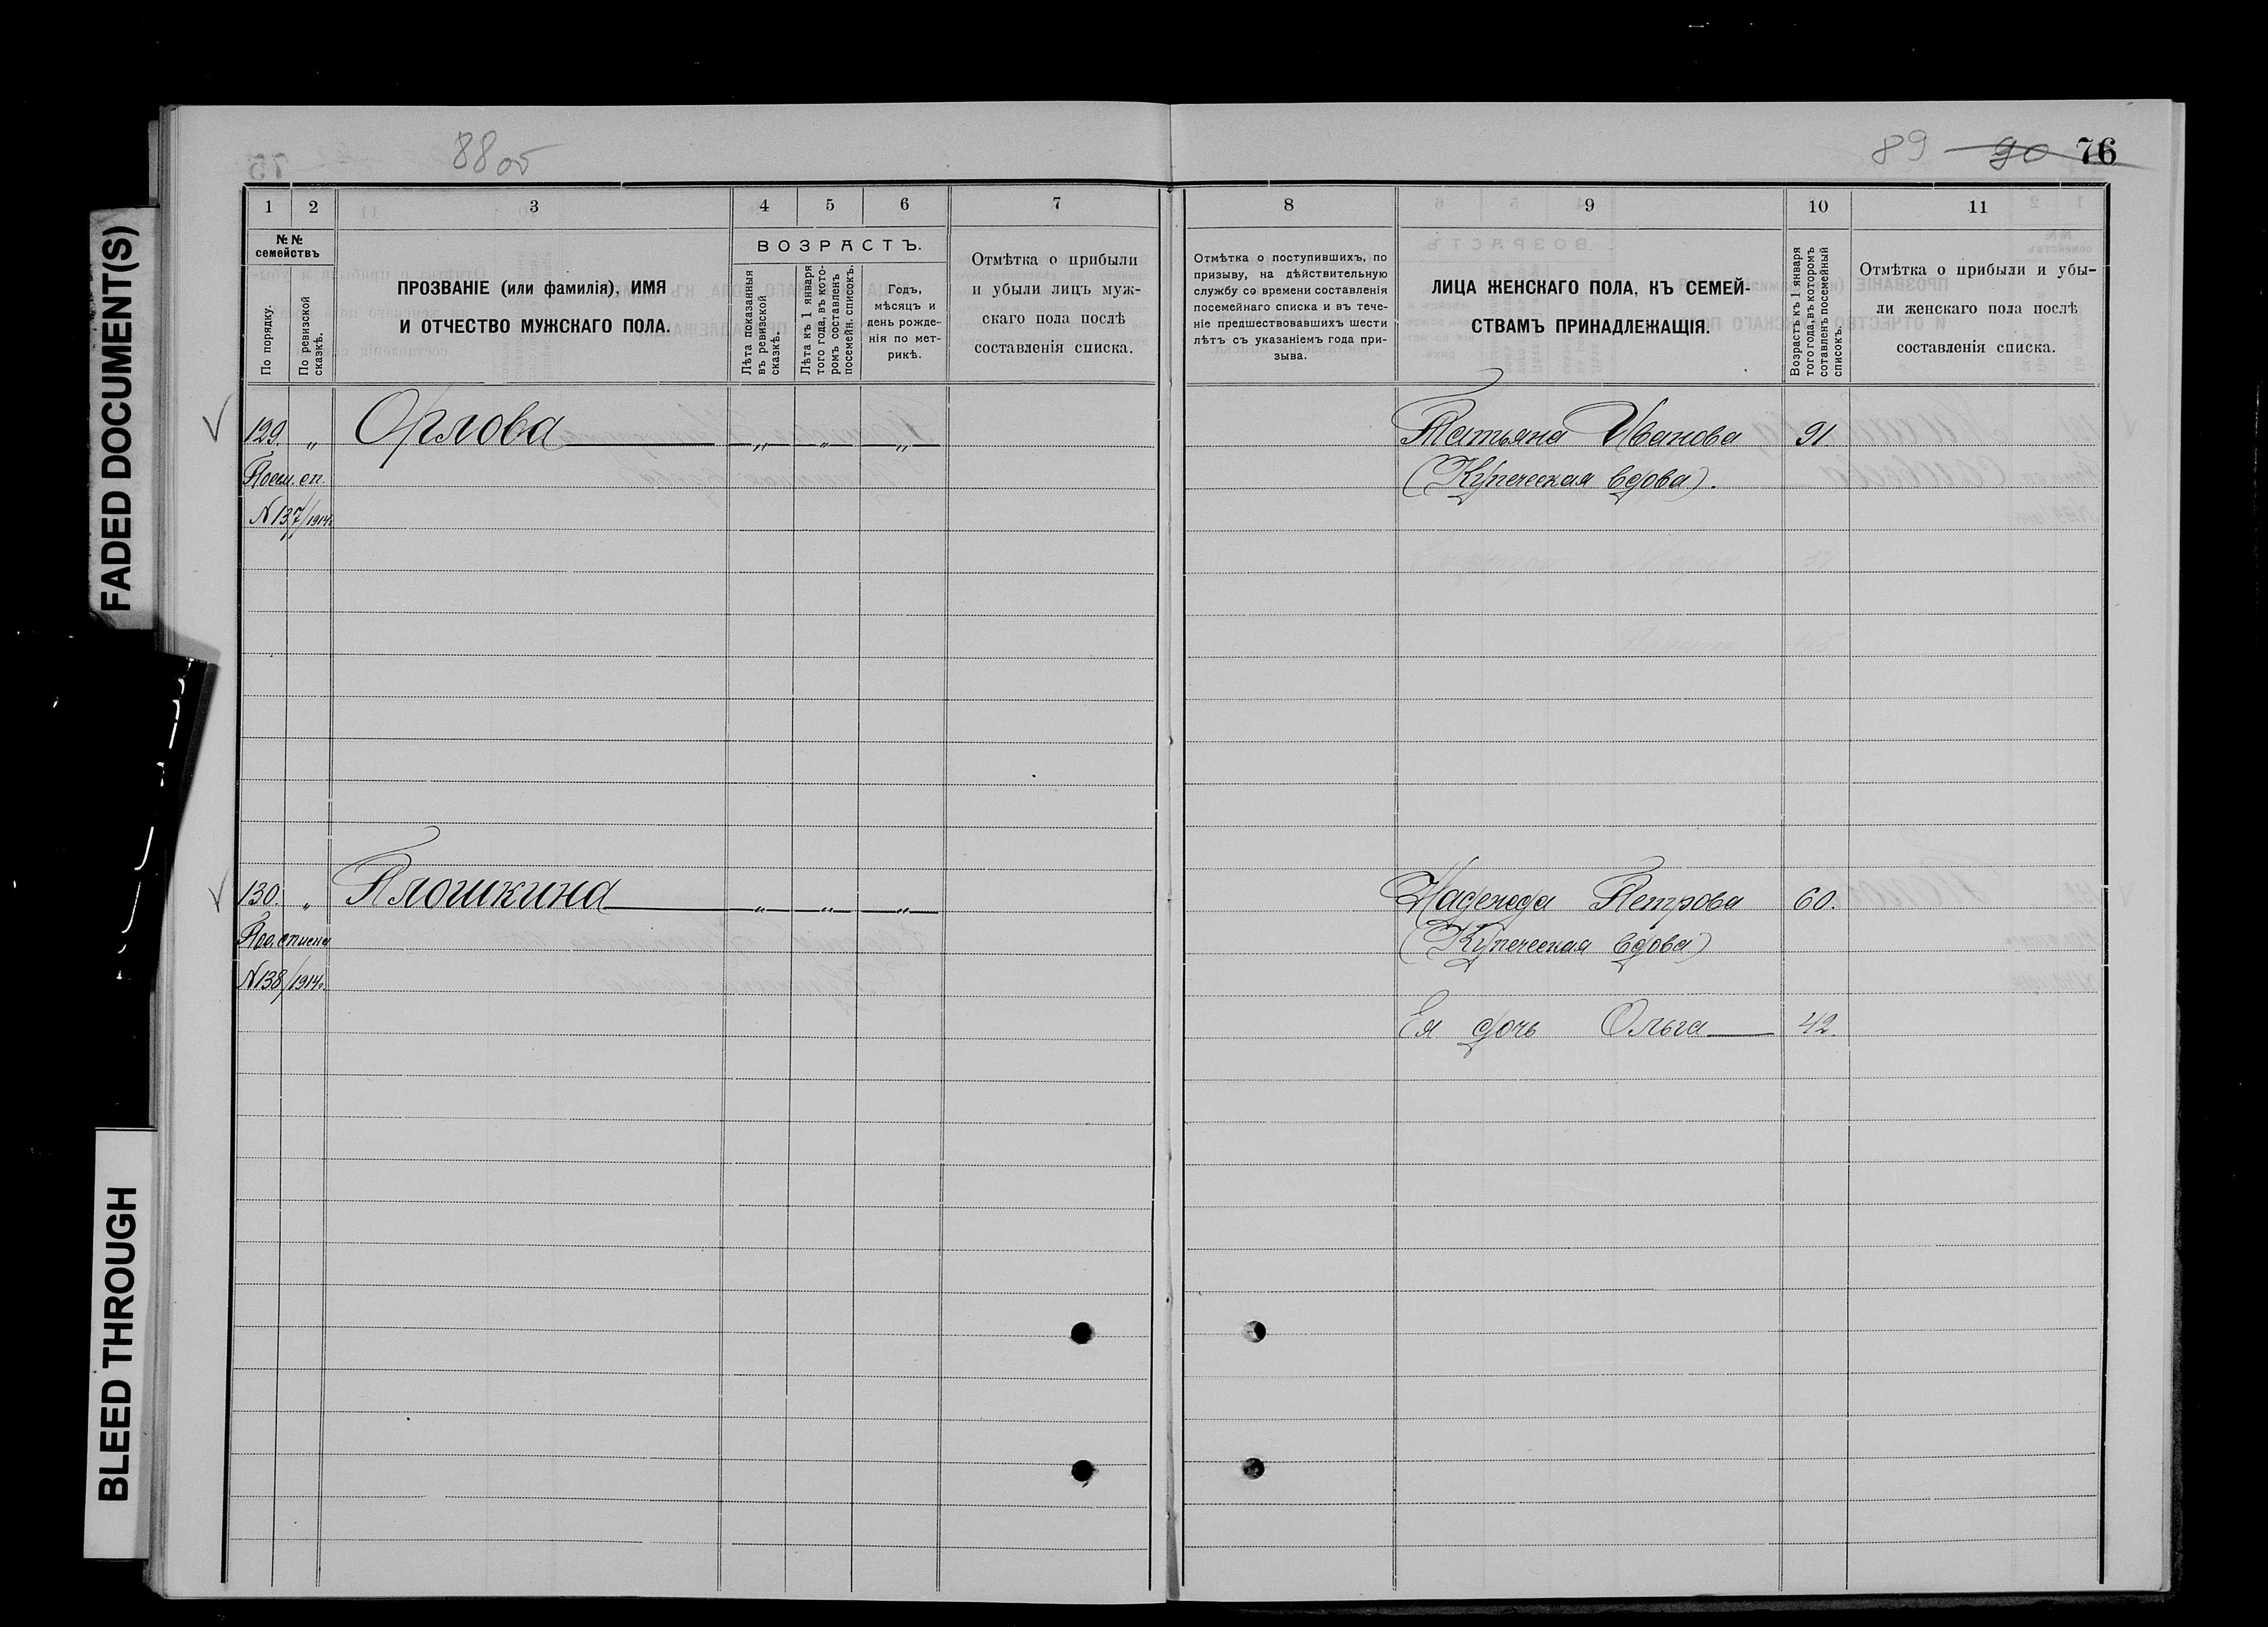 FADED DOCUMENT(S)
BLEED THROUGH
88 об
89 90 76
1 2 3 4 5 6 7
№№ семействъ
По порядку.
По ревизской сказкѣ.
ПРОЗВАНІЕ (или фамилія), ИМЯ
И ОТЧЕСТВО МУЖСКАГО ПОЛА.
ВОЗРАСТЪ.
Лѣта показанныя въ ревизской сказкѣ.
Лѣта къ 1 января того года, въ которомъ составленъ посемейн. списокъ.
Годъ,
мѣсяцъ и
день рожде-
нія по мет-
рикѣ.
Отмѣтка о прибыли
и убыли лицъ муж-
скаго пола послѣ
составленія списка.
129. „ Орлова — „ — „ — „ —
Посем. сп.
N 137/1914г.
130. „ Плошкина — „ — „ — „ —
Пос. списка
N 138/1914г.
8 9 10 11
Отмѣтка о поступившихъ, по
призыву, на дѣйствительную
службу со времени составленія
посемейнаго списка и въ тече-
ніе предшествовавшихъ шести
лѣтъ съ указаніемъ года при-
зыва.
ЛИЦА ЖЕНСКАГО ПОЛА, КЪ СЕМЕЙ-
СТВАМЪ ПРИНАДЛЕЖАЩІЯ.
Возрастъ къ 1 января
того года, въ которомъ
составленъ посемейный
списокъ.
Отмѣтка о прибыли и убы-
ли женскаго пола послѣ
составленія списка.
Татьяна Иванова 91
(Купеческая вдова).
Надежда Петрова 60.
(Купеческая вдова)
Ея дочь Ольга — 42.